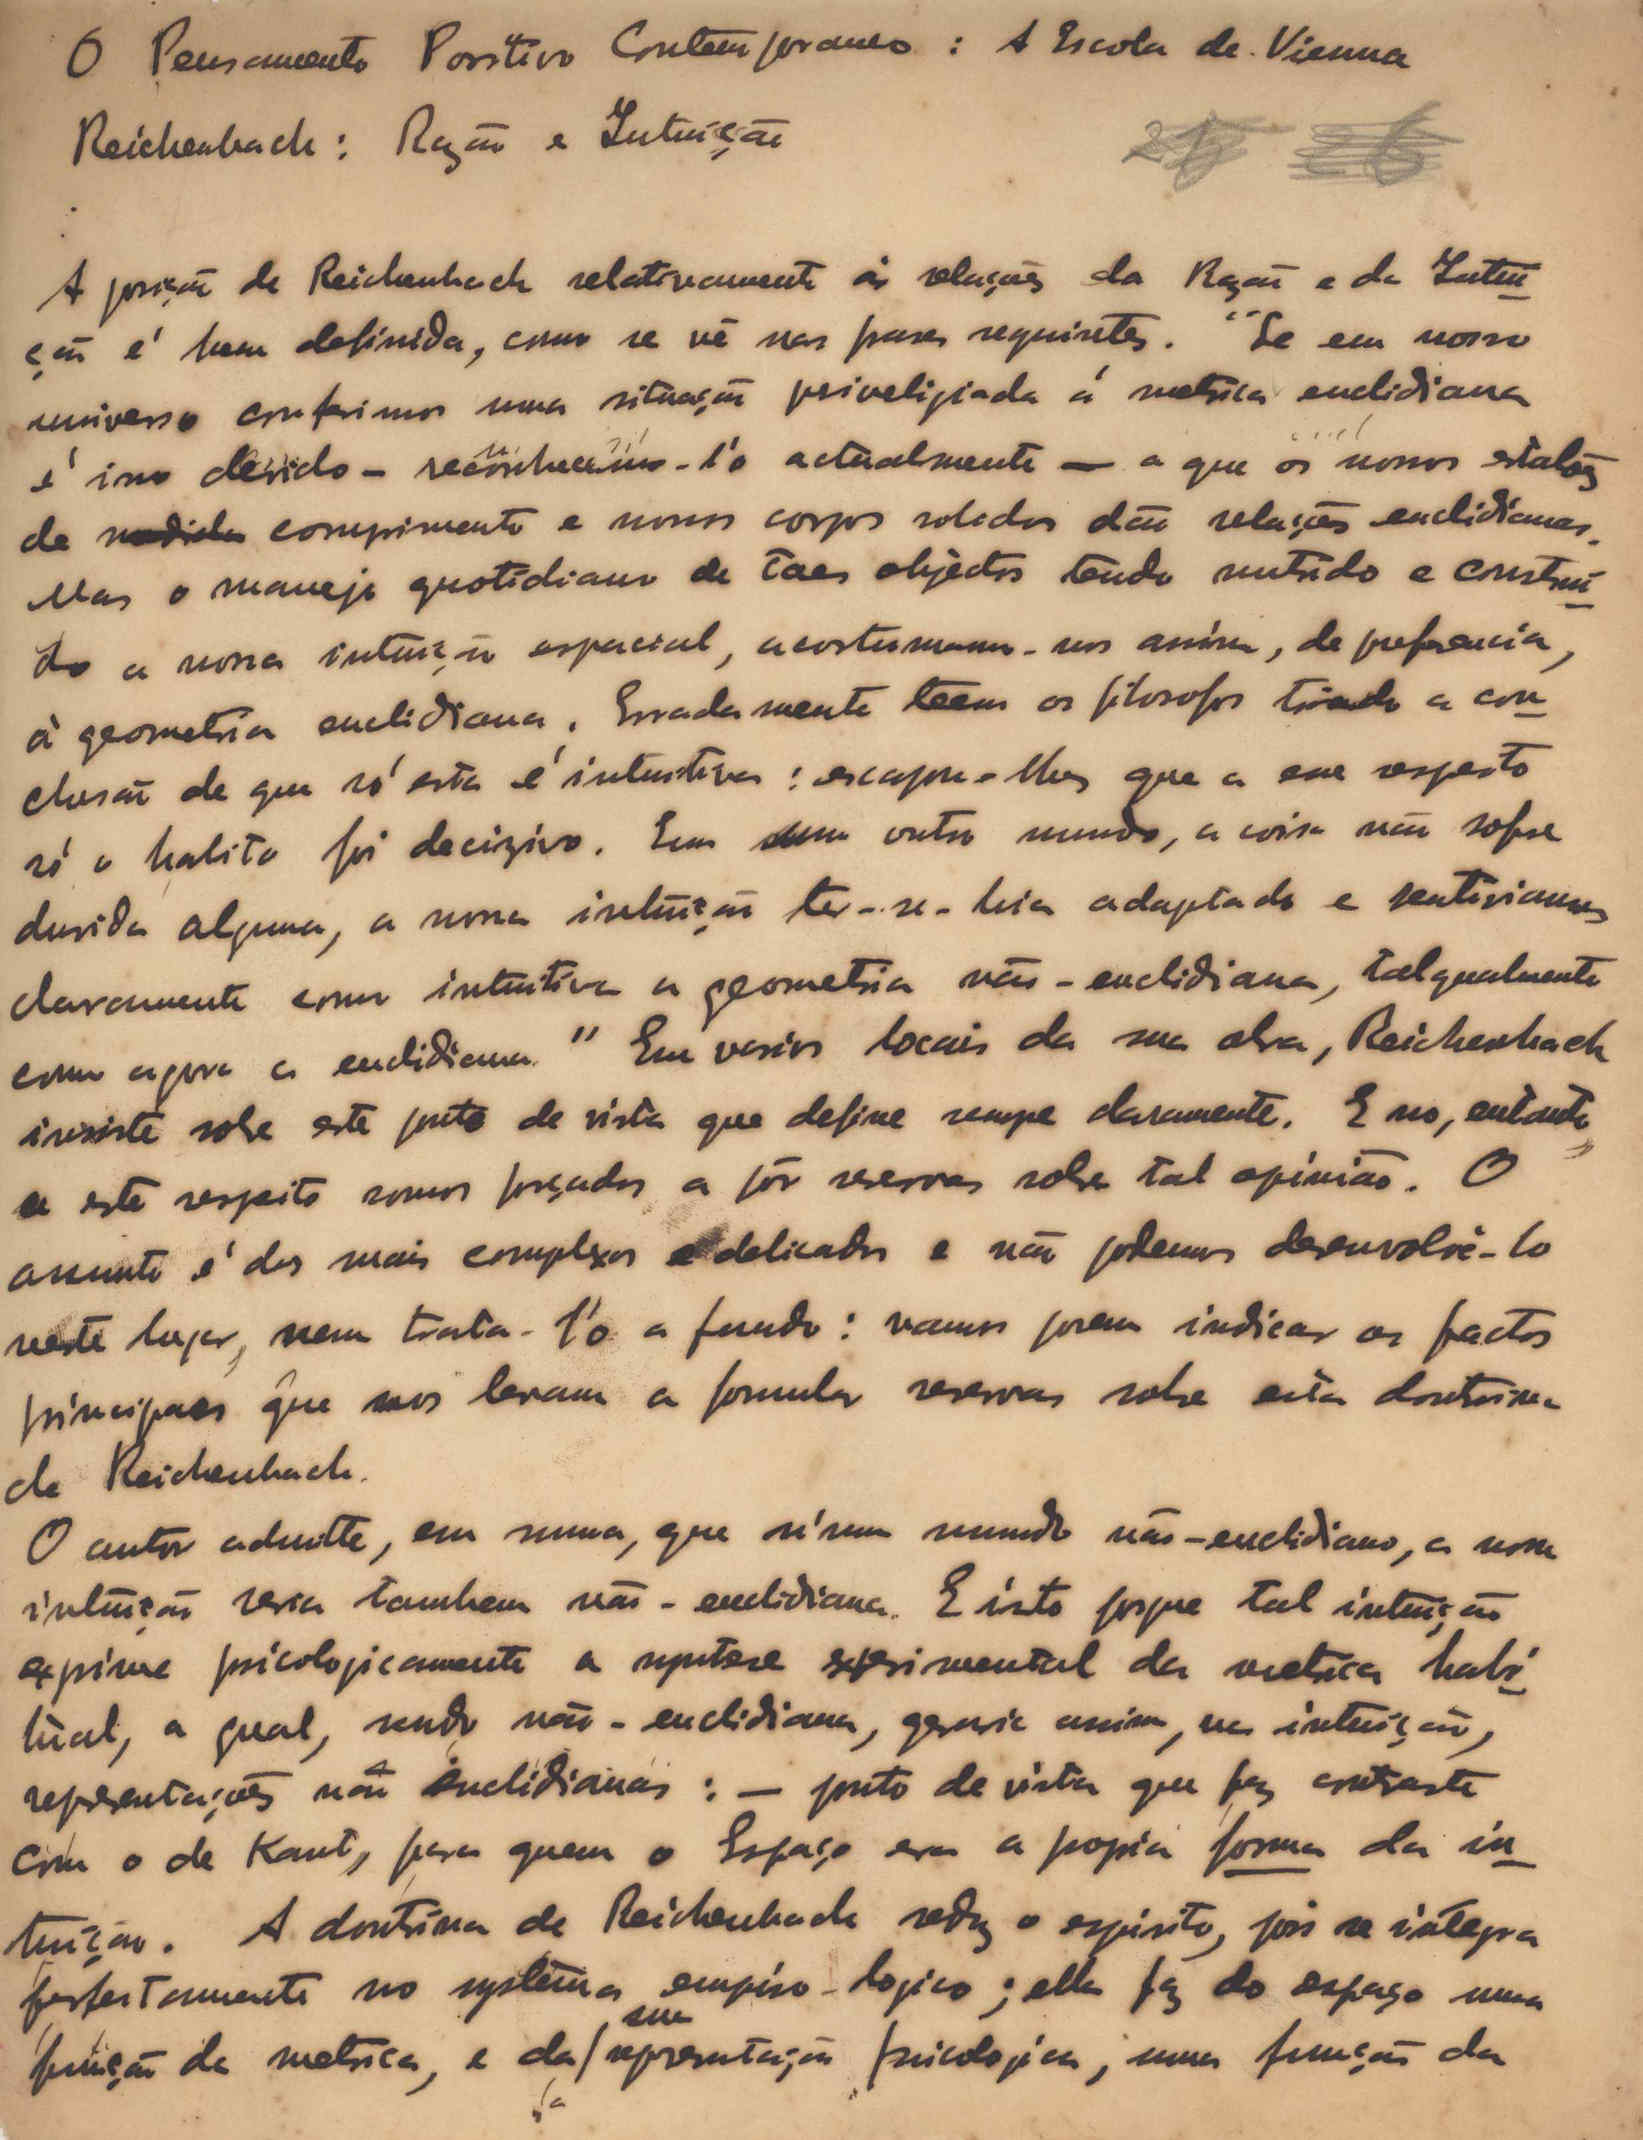 O Pensamento Positivo Contemporaneo : A Escola de Vienna
Reichenbach : Razão e Intuição
25 26
A posição de Reichenbach relativamente ás relações da Razão e da Intui
ção é bem definida, como se vê nas frases seguintes. "Se em nosso
universo conferimos uma situação priveligiada á metrica euclidiana
é isso devido - reconhecemo-l'o actualmente — a que os nossos estalões
de medida comprimento e nossos corpos solidos dão relações euclidianas.
Mas o manejo quotidiano de taes objectos tendo nutrido e construi
do a nossa intuição espacial, acostumamo-nos assim, de preferencia,
à geometria euclidiana. Erradamente teem os filosofos tirado a con
clusão de que só esta é intuitiva : escapou-lhes que a esse respeito
só o habito foi decizivo. Em um outro mundo, a coisa não sofre
duvida alguma, a nossa intuição ter-se-hia adaptado e sentiriamos
claramente como intuitiva a geometria não-euclidiana, talqualmente
como agora a euclidiana." Em varios locais da sua obra, Reichenbach
insiste sobre este ponto de vista que define sempe claramente. E no, entanto,
a este respeito somos forçados a pôr reservas sobre tal opinião. O
assunto é dos mais complexos e delicados e não podemos desenvolvê-lo
neste lugar, nem trata-l'o a fundo : vamos porem indicar os factos
principaes que nos levam a formular reservas sobre esta doutrina
de Reichenbach.
O autor admitte, em suma, que n'um mundo não-euclidiano, a nossa
intuição seria tambem não-euclidiana. E isto porque tal intuição
exprime psicologicamente a syntese experimental da metrica habi
tual, a qual, sendo não-euclidiana, geraria assim, na intuição,
representações não euclidianas : — ponto de vista que faz contraste
com o de Kant, para quem o Espaço era a propia forma da in
tuição. A doutrina de Reichenbach seduz o espirito, pois se integra
perfeitamente no systema empiro-logico ; ella faz do espaço uma
função da metrica, e da/ representação psicologica, uma função da
sua